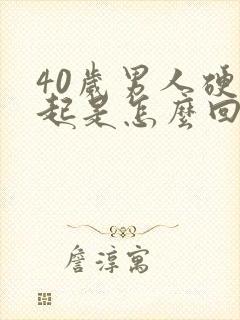 40歲男人硬
起是怎麼回
詹淳寓